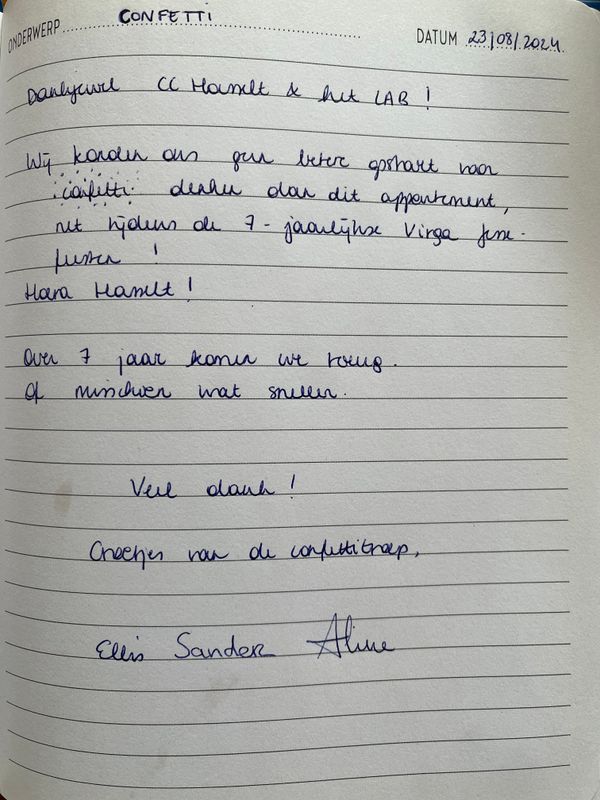 ONDERWERP CONFETTI
DATUM 23/08/2024
Dankjewel CC Hasselt & het LAB!
Wij konden ons geen betere opstart voor
confetti denken dan dit appartement,
net tijdens de 7-jaarlijkse Virga Jesse-
feesten!
Hasselt!
Over 7 jaar komen we terug.
Of misschien wat sneller.
Veel dank!
Groetjes van de confettitroep,
Ellis Sander Aline